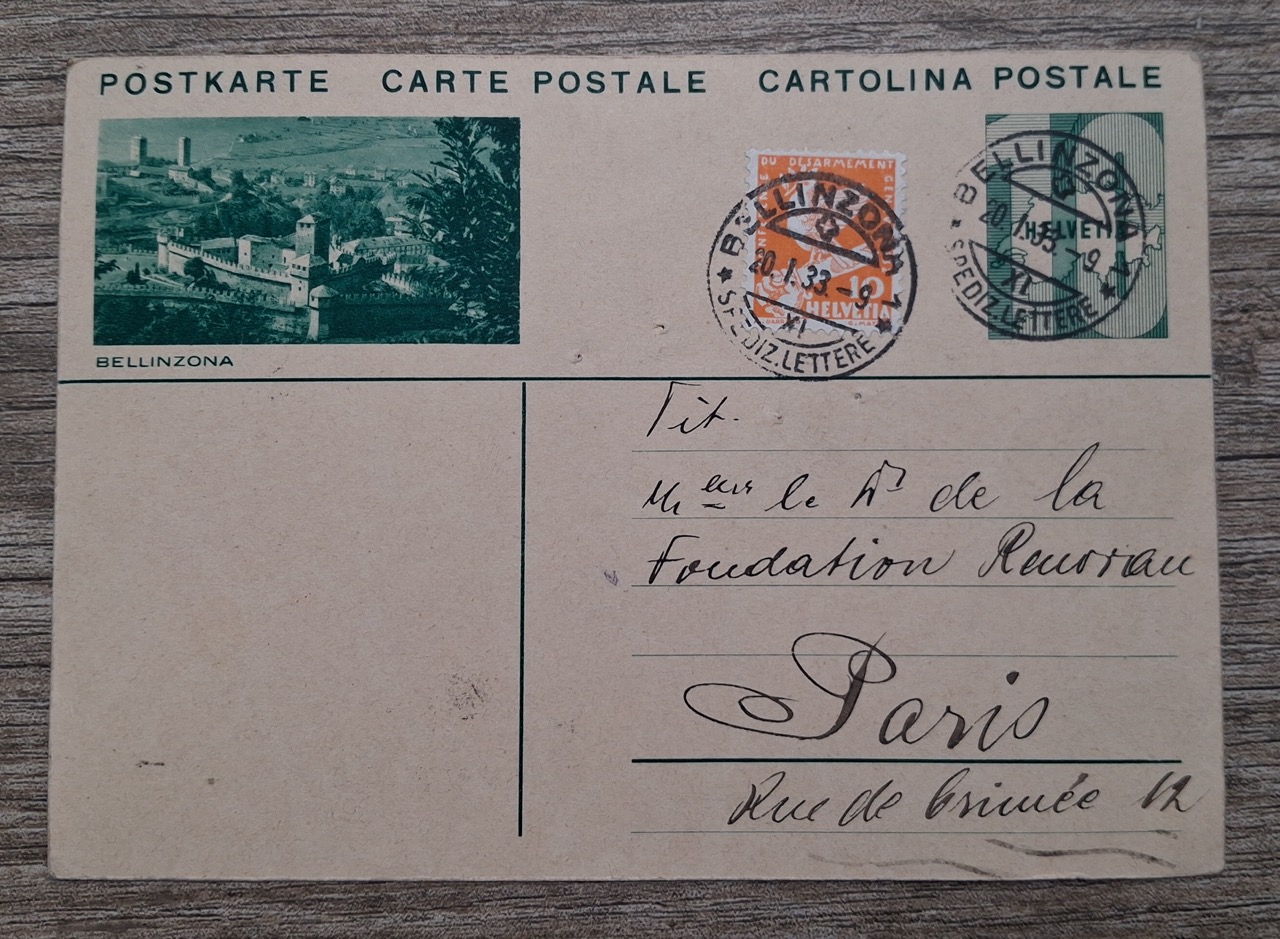 POSTKARTE CARTE POSTALE CARTOLINA POSTALE
BELLINZONA
DU DÉSARMEMENT
10
HELVETIA
BELLINZONA 1
20.I.33.-9
XI
SPEDIZ.LETTERE
HELVETIA
BELLINZONA 1
20.I.33.-9
XI
SPEDIZ.LETTERE
Tit.
le Dr de la
Fondation Renovan
Paris
Rue de Crimée 12